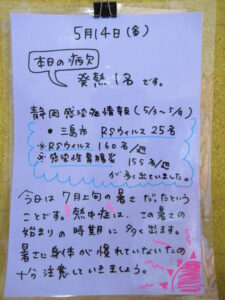 5月14日(金)
本日の病欠
発熱1名です。
静岡感染症情報(5/3~5/9)
● 三島市 RSウイルス 25名
※RSウイルス 160名/週
※感染性胃腸炎 155名/週
が多く出ていました。
今日は7月上旬の暑さだったという
ことです。熱中症は、この暑さの
始まりの時期に多く出ます。
暑さに身体が慣れていないため
十分注意していきましょう。